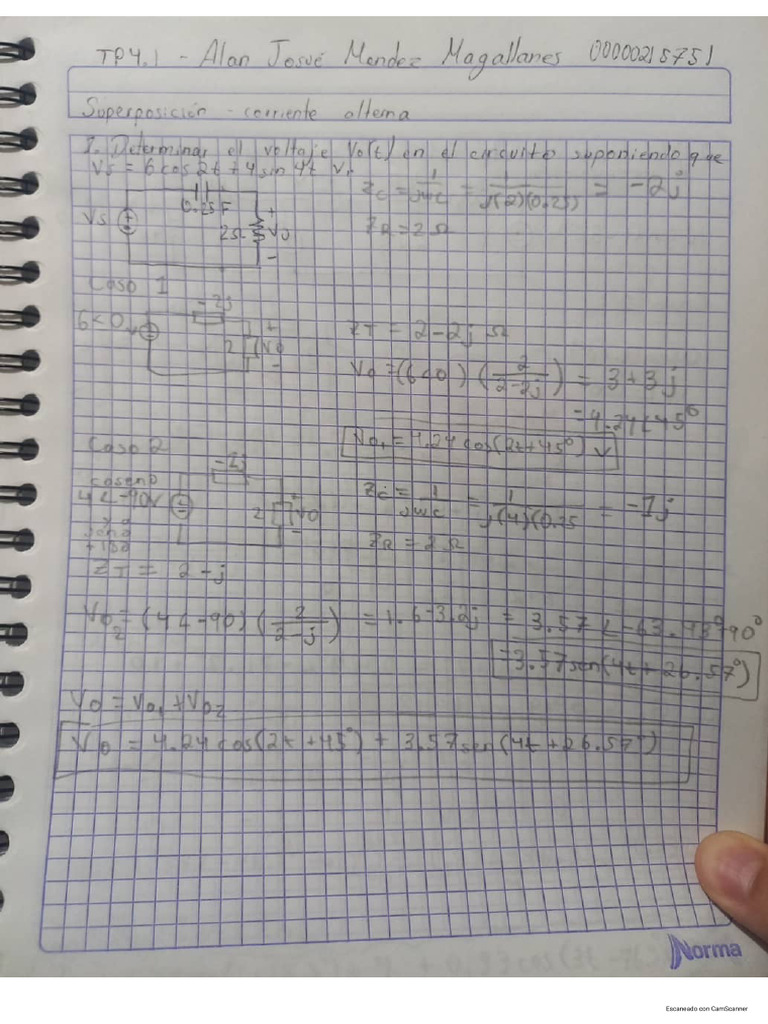 TP4.1 - Alan Josué Mendez Magallanes 0000215751
Superposición - corriente alterna
1. Determinar el voltaje Vo(t) en el circuito suponiendo que
Vs = 6 cos 2t + 4 sin 4t V.
Zc = 1/jwc = 1/j(2)(0.25) = -2j
0.25F
Vs
2Ω
+
Vo
-
ZR = 2Ω
Caso 1
-2j
6<0 v
2
+
Vo
-
ZT = 2 - 2j Ω
Vo = (6<0) (2/2-2j) = 3+3j
= 4.24<45°
Vo1 = 4.24 cos(2t+45°) v
Caso 2
-2j
coseno
4<-90V
2
+
Vo
-
Zc = 1/jwc = 1/j(4)(0.25 = -1j
ZR = 2Ω
ZT = 2 - j
Vo2 = (4<-90) (2/2-j) = 1.6-3.2j = 3.57 <-63.43°+90°
= 3.57 sen(4t+26.57°)
Vo = Vo1 + Vo2
Vo = 4.24 cos(2t+45°) + 3.57 sen(4t+26.57°)
Norma
Escaneado con CamScanner